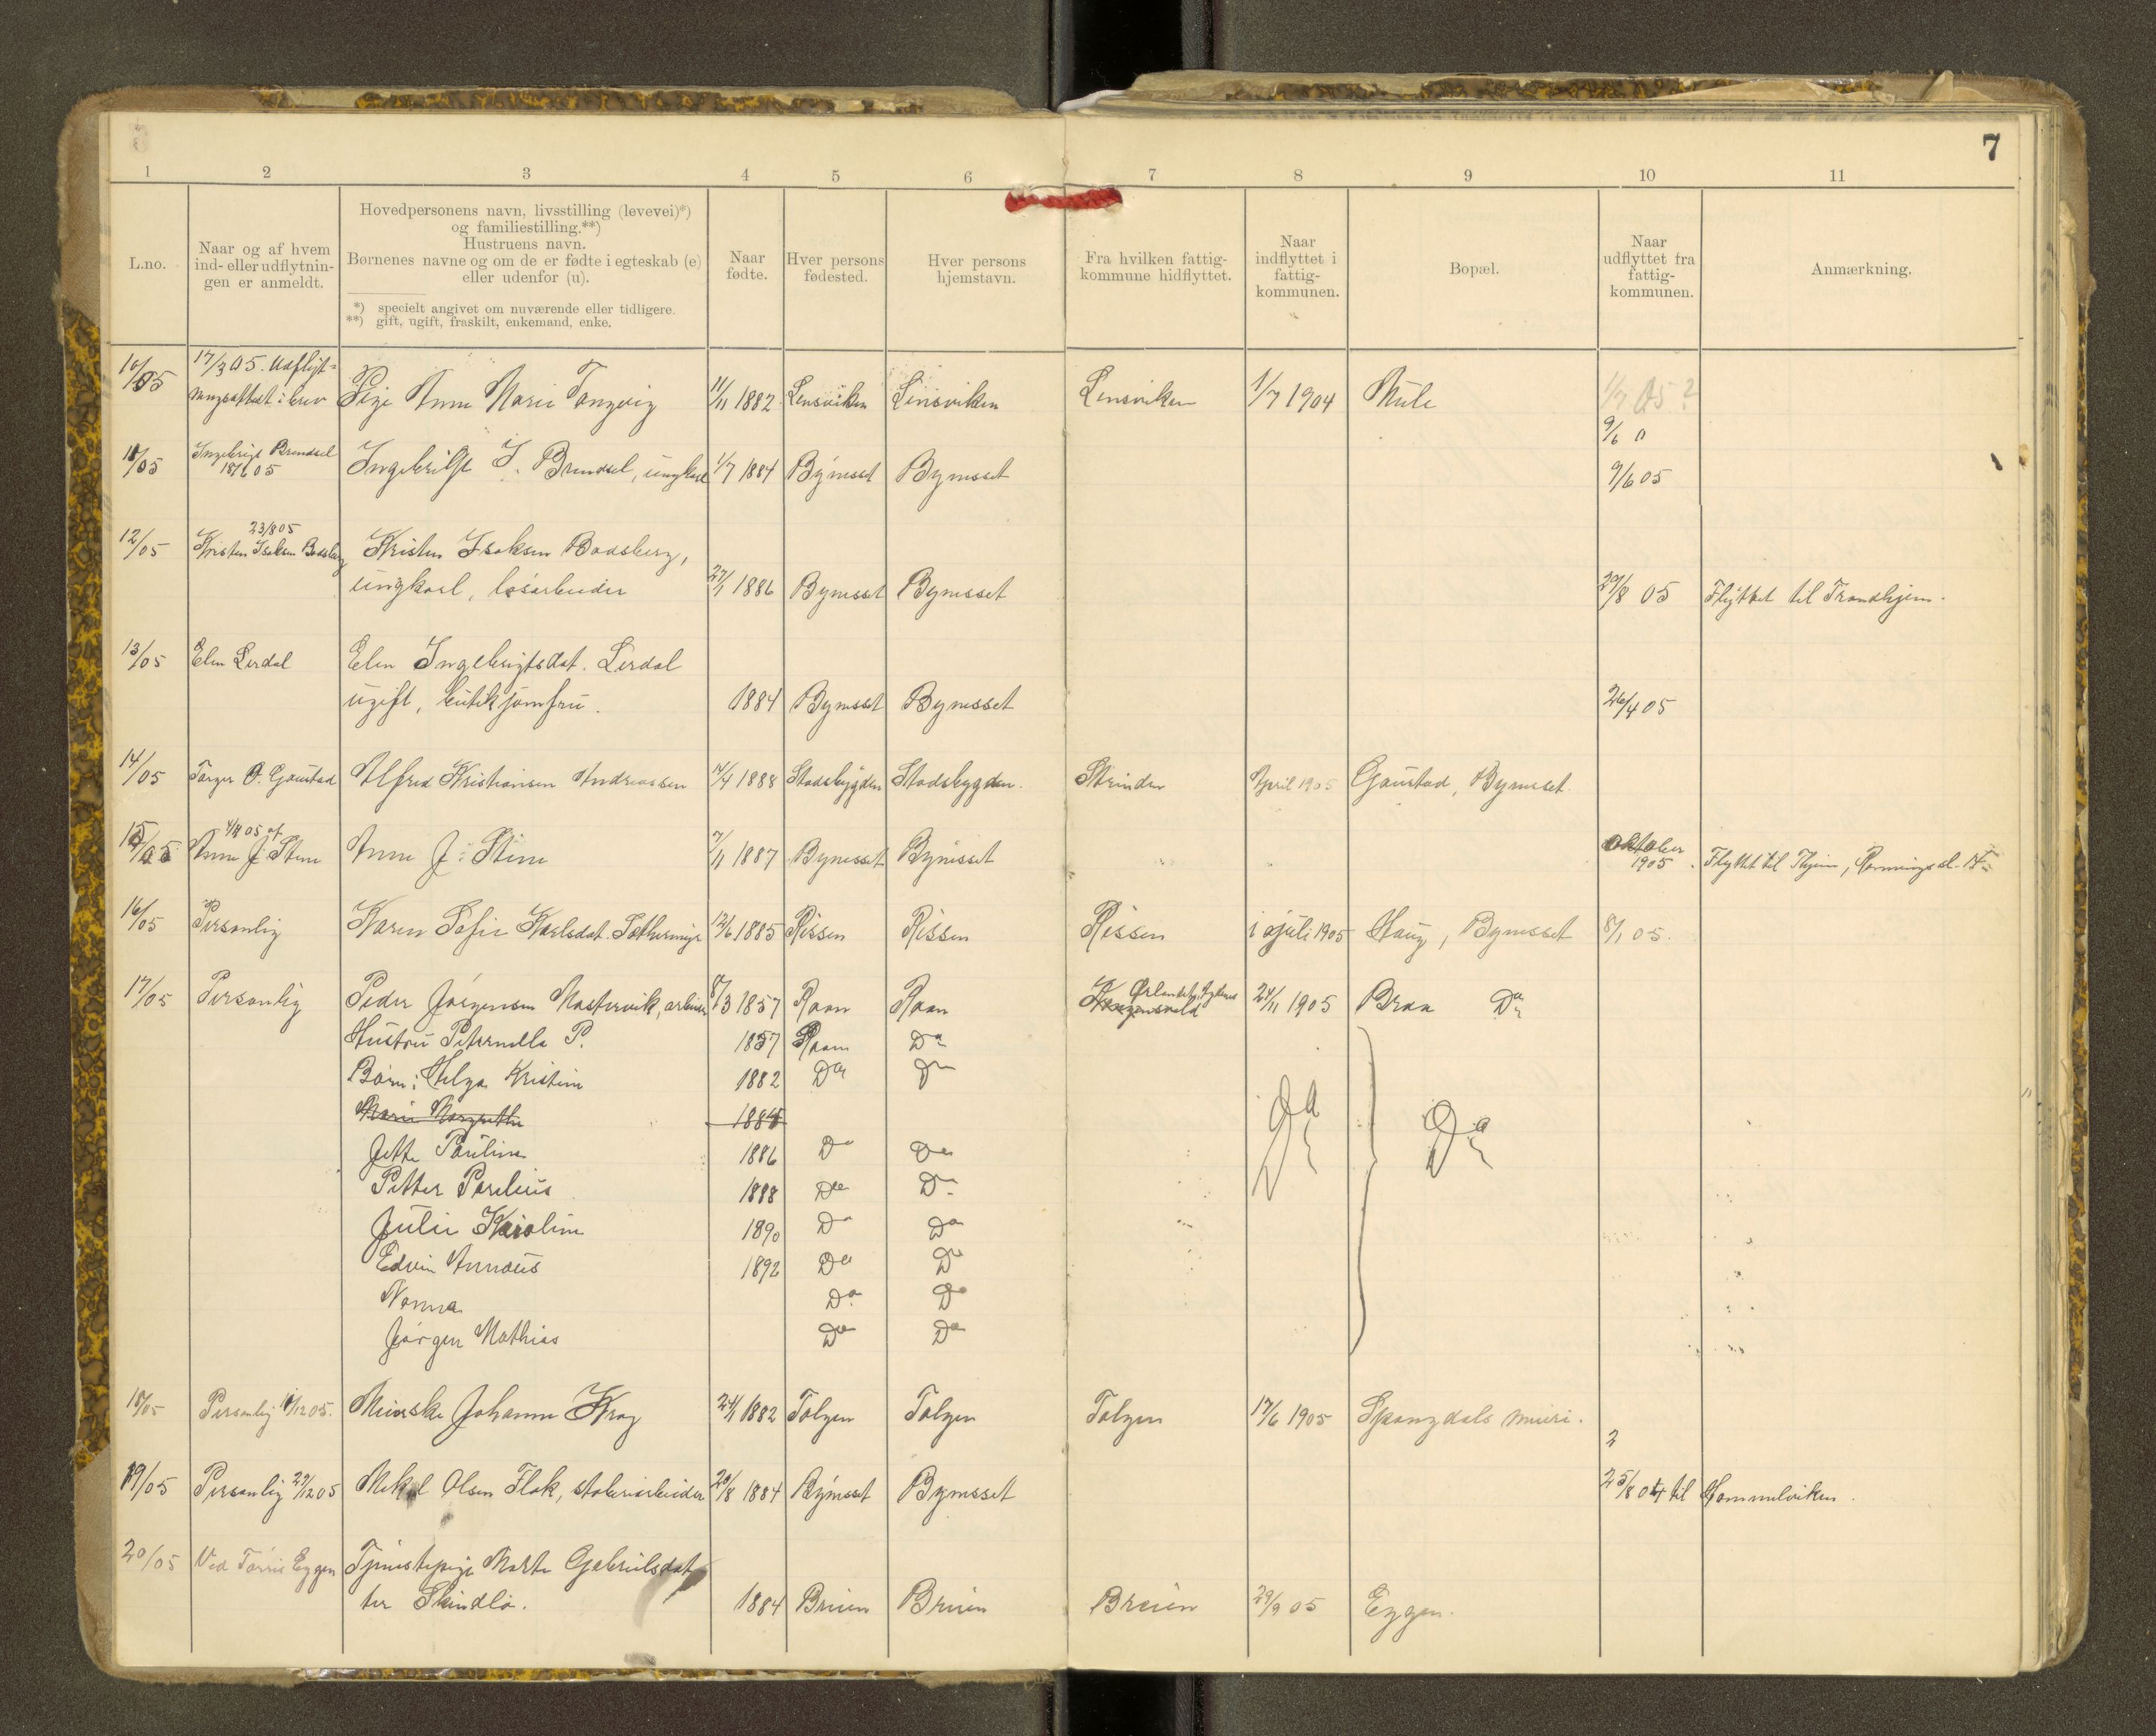 7
1 2 3 4 5 6 7 8 9 10 11
L.no.
Naar og af hvem
ind- eller udflytnin-
gen er anmeldt.
Hovedpersonens navn, livsstilling (levevei)*)
og familiestilling.**)
Hustruens navn.
Børnenes navne og om de er fødte i egteskab (e)
eller udenfor (u).
*) specielt angivet om nuværende eller tidligere.
**) gift, ugift, fraskilt, enkemand, enke.
Naar
fødte.
Hver persons
fødested.
Hver persons
hjemstavn.
Fra hvilken fattig-
kommune hidflyttet.
Naar
indflyttet i
fattig-
kommunen.
Bopæl.
Naar
udflyttet fra
fattig-
kommunen.
Anmærkning.
10/05 17/3 05. Udflyt-
ningsattest i brev Pige Anne Marie Tangvig 11/11 1882 Lensviken Lensviken Lensviken 1/7 1904 Mule 1/7 05?
9/6 0
11/05 Ingebrigt Brendsel
18/6 05 Ingebrigt J. Brendsel, ungkarl 1/7 1884 Bynesset Bynesset 9/6 05
12/05 23/8 05
Kristen Isaksen Bodsberg Kristen Isaksen Bodsberg,
ungkarl, løsarbeider 27/1 1886 Bynesset Bynesset 29/8 05 Flyttet til Trondhjem.
13/05 Elen Lerdal Elen Ingebrigtsdat. Lerdal
ugift, butikjomfru. 1884 Bynesset Bynesset 26/4 05
14/05 Torger O. Gaustad Alfred Kristiansen Andreassen 14/4 1888 Stadsbygden Stadsbygden. Strinden April 1905 Gaustad, Bynesset.
15/05 4/11 05 af
Anne J. Stene Anne J. Stene 7/11 1887 Bynesset Bynesset Oktober
1905. Flyttet til Thjem,
16/05 Personlig Karen Sofie Karlsdat. 12/6 1885 Rissen Rissen Rissen i juli 1905 Haug, Bynesset 8/1 05.
17/05 Personlig Peder Jørgensen Mastervik, arbeider 8/3 1857 Roan Roan Ørlandet 24/11 1905 Braa Do
Hustru Peternella P. 1857 Roan Do
Børn: Helga Kristine 1882 Do Do
Marie Margrethe 1884
Jette Pauline 1886 Do Do Do Do
Petter Parelius 1888 Do Do
Julie Karoline 1890 Do Do
Edvin Annæus 1892 Do Do
Norma Do Do
Jørgen Mathias Do Do
18/05 Personlig 11/12 05. Meierske Johanne Krog 24/1 1882 Tolgen Tolgen Tolgen 17/6 1905 Spongdals meieri.
2
19/05 Personlig 29/12 05 Mekal Olsen Flak, støberiarbeider 20/8 1884 Bynesset Bynesset 25/8 04 til Hommelviken.
20/05 Ved Tørris Eggen Tjenestepige Marte Gabrielsdat-
ter Skindlo. 1884 Breien Breien Breien 29/9 05 Eggen.